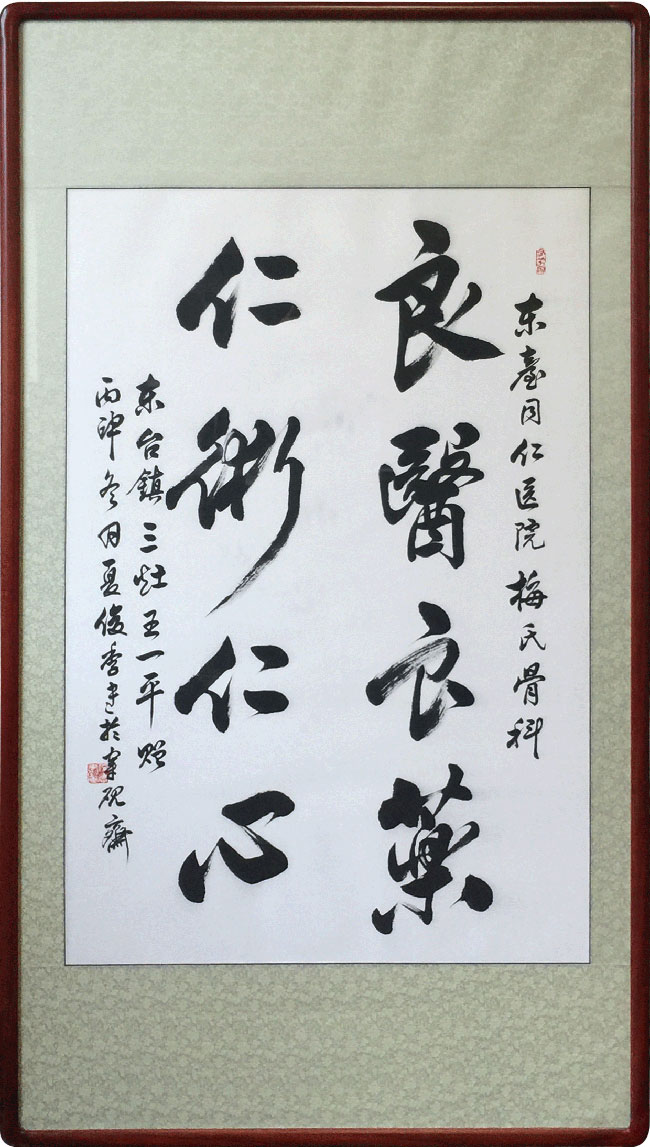 东臺同仁医院梅氏骨科
良醫良藥
仁術仁心
东台鎮三灶王一平赠
丙申冬月夏俊季書於寒砚齋